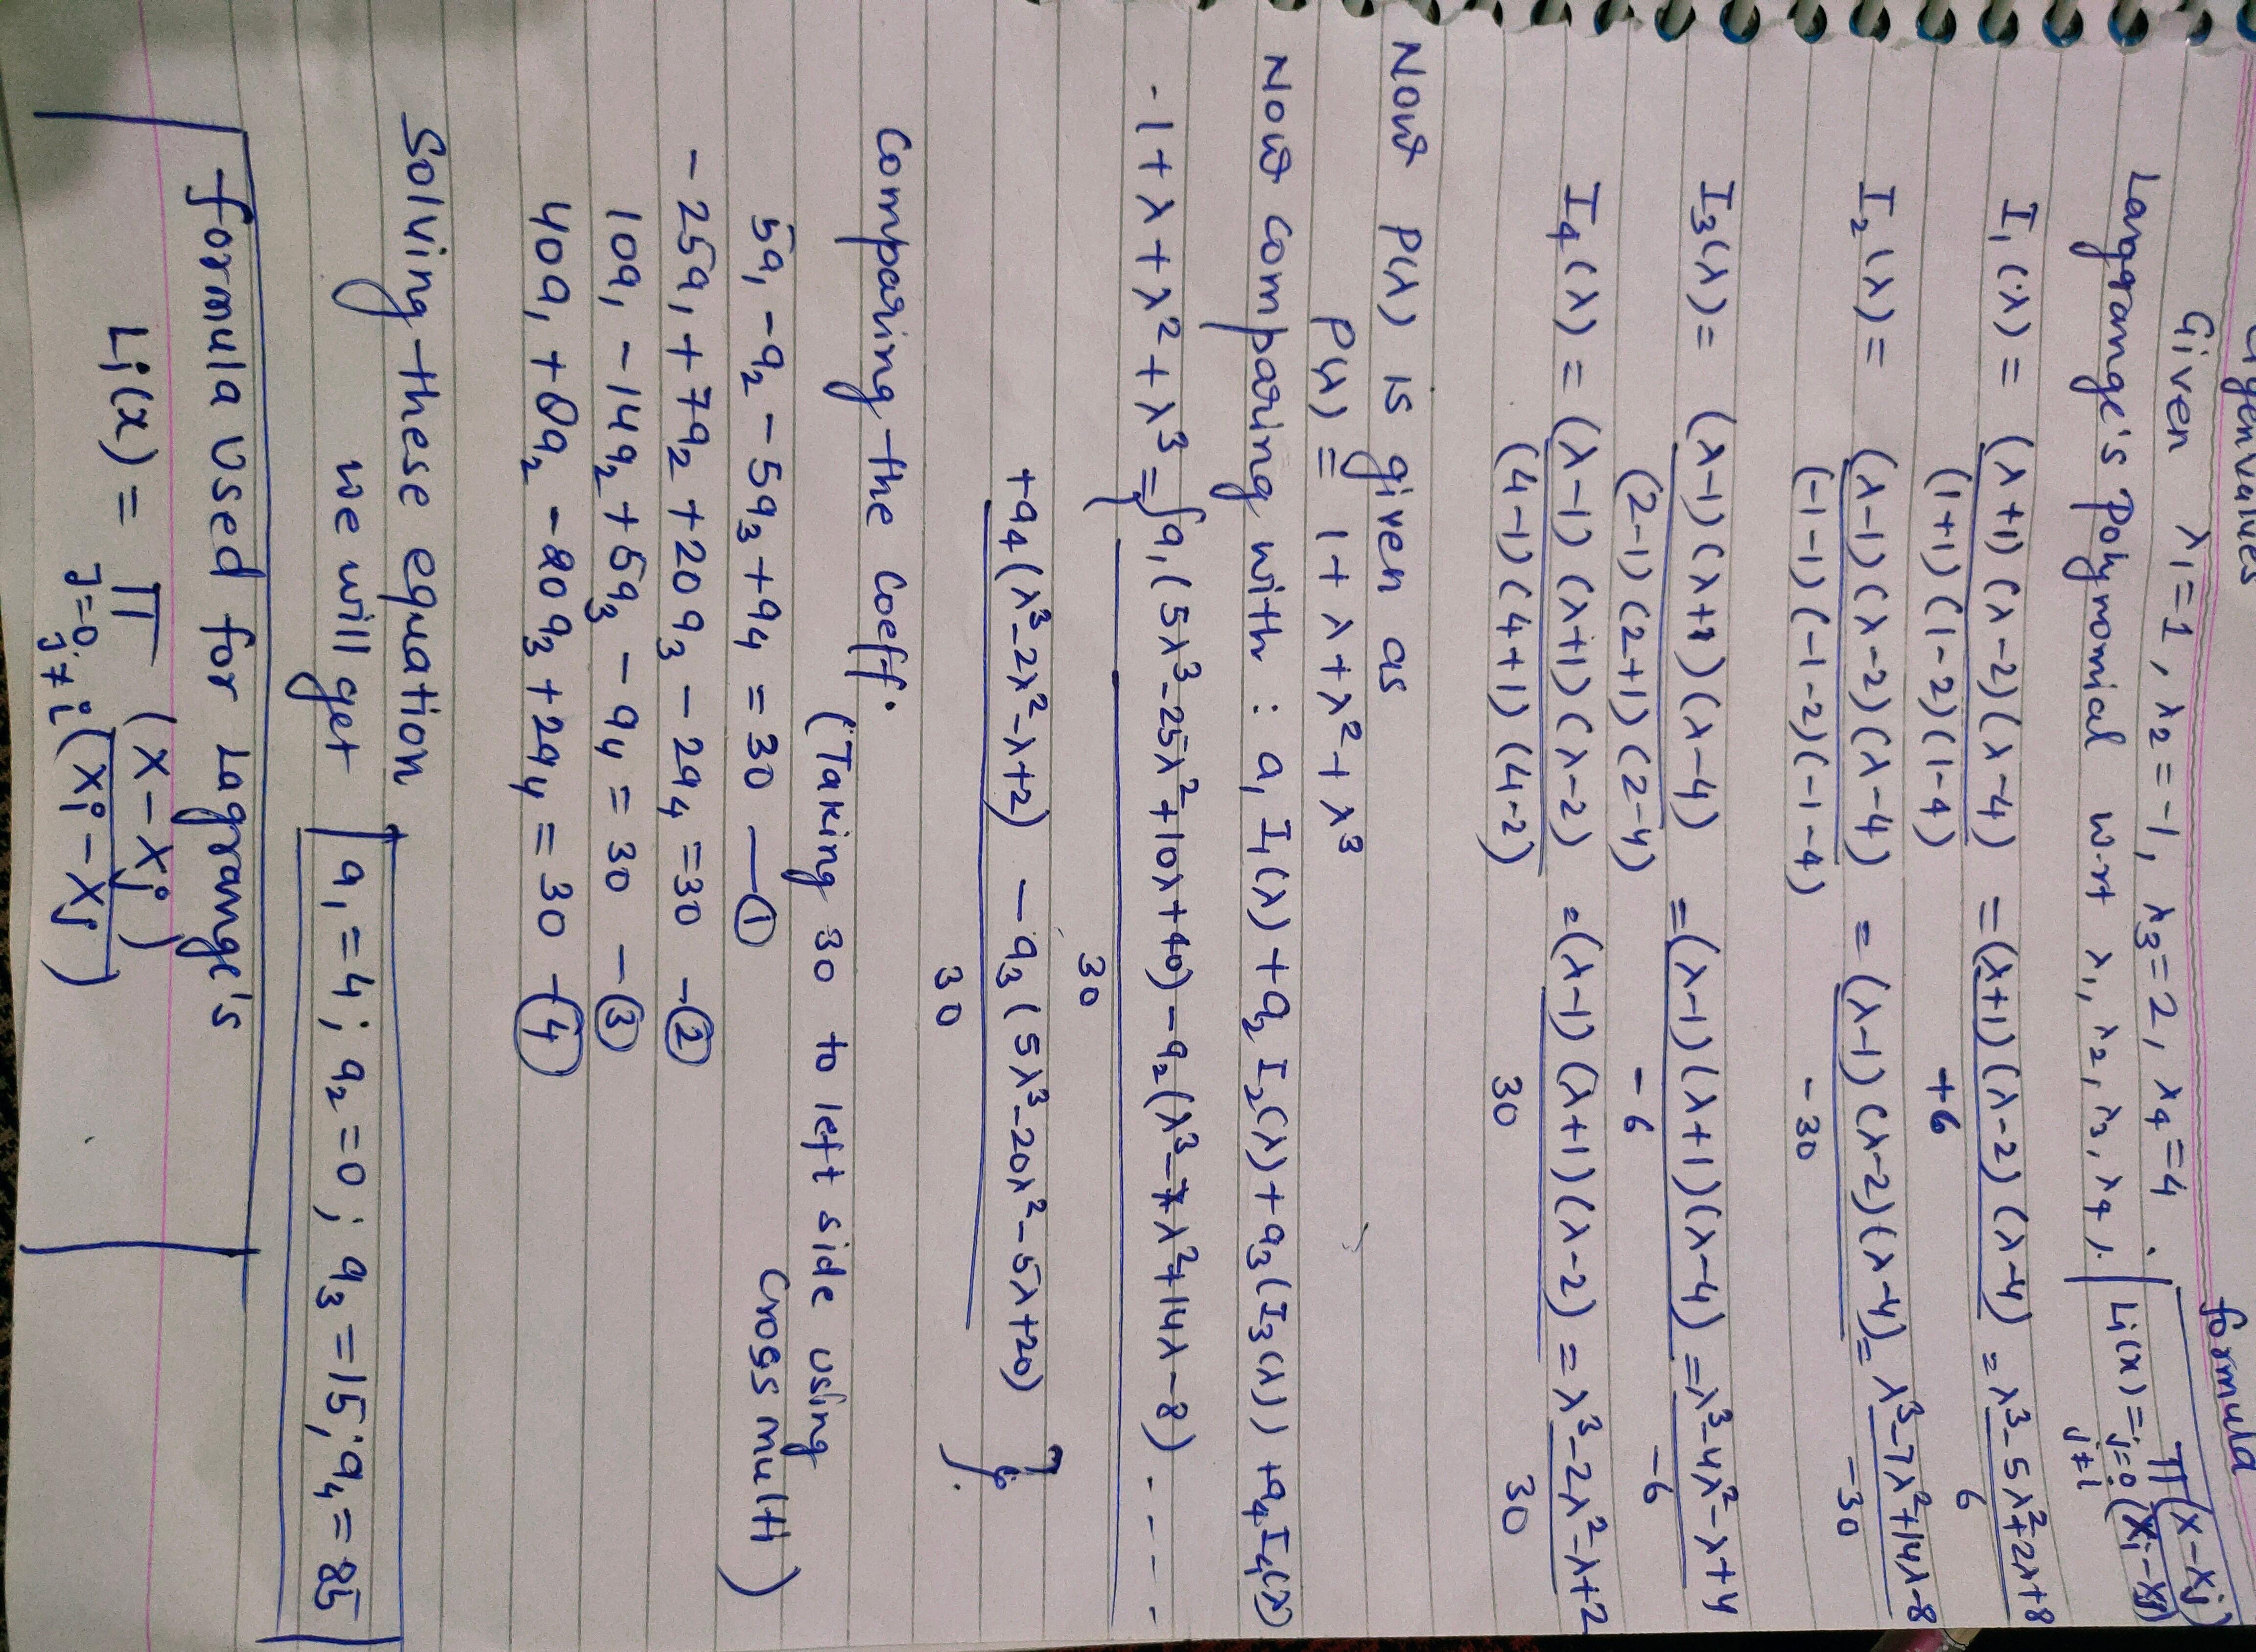 Eigenvalues
formula
Given λ₁=1, λ₂=-1, λ₃=2, λ₄=4.
Langrange's Polynomial wrt λ₁, λ₂, λ₃, λ₄.
Li(x) = π (x-xj)
j=0 (xi-xj)
j≠i
I₁(λ) = (λ+1)(λ-2)(λ-4) = (λ+1)(λ-2)(λ-4) = λ³-5λ²+2λ+8
(1+1)(1-2)(1-4) +6 6
I₂(λ) = (λ-1)(λ-2)(λ-4) = (λ-1)(λ-2)(λ-4) = λ³-7λ²+14λ-8
(-1-1)(-1-2)(-1-4) -30 -30
I₃(λ) = (λ-1)(λ+1)(λ-4) = (λ-1)(λ+1)(λ-4) = λ³-4λ²-λ+4
(2-1)(2+1)(2-4) -6 -6
I₄(λ) = (λ-1)(λ+1)(λ-2) = (λ-1)(λ+1)(λ-2) = λ³-2λ²-λ+2
(4-1)(4+1)(4-2) 30 30
Now P(λ) is given as
P(λ) = 1+λ+λ²+λ³
Now comparing with : a₁I₁(λ)+a₂I₂(λ)+a₃(I₃(λ))+a₄I₄(λ)
-1+λ+λ²+λ³ = {a₁(5λ³-25λ²+10λ+40)-a₂(λ³-7λ²+14λ-8) ----
30
+a₄(λ³-2λ²-λ+2) -a₃(5λ³-20λ²-5λ+20) }.
30
Comparing the coeff.
(Taking 30 to left side using
Cross mult)
5a₁-a₂-5a₃+a₄=30 —①
-25a₁+7a₂+20a₃-2a₄=30 -②
10a₁-14a₂+5a₃-a₄=30 -③
40a₁+8a₂-20a₃+2a₄=30 -④
Solving these equation
we will get a₁=4; a₂=0; a₃=15; a₄=85
formula used for Lagrange's
Li(x) = π (x-xj)
j=0 (xi-xj)
j≠i